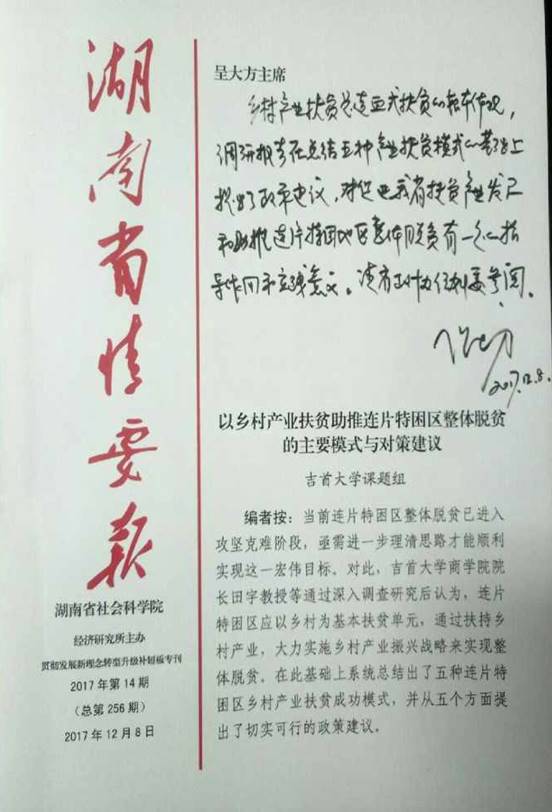 湖南省情要报
湖南省社会科学院
经济研究所主办
贯彻发展新理念转型升级补短板专刊
2017年第14期
（总第256期）
2017年12月8日
呈大方主席
乡村产业扶贫是造血式扶贫的
调研报告在总结五种产业扶贫模式的基础上
提出了政策建议，对促进我省扶贫产业发展
和助推连片特困地区整体脱贫有一定的指
导作用和实践意义。
2017.12.8.
以乡村产业扶贫助推连片特困区整体脱贫
的主要模式与对策建议
吉首大学课题组
编者按：当前连片特困区整体脱贫已进入
攻坚克难阶段，亟需进一步理清思路才能顺利
实现这一宏伟目标。对此，吉首大学商学院院
长田宇教授等通过深入调查研究后认为，连片
特困区应以乡村为基本扶贫单元，通过扶持乡
村产业，大力实施乡村产业振兴战略来实现整
体脱贫。在此基础上系统总结出了五种连片特
困区乡村产业扶贫成功模式，并从五个方面提
出了切实可行的政策建议。